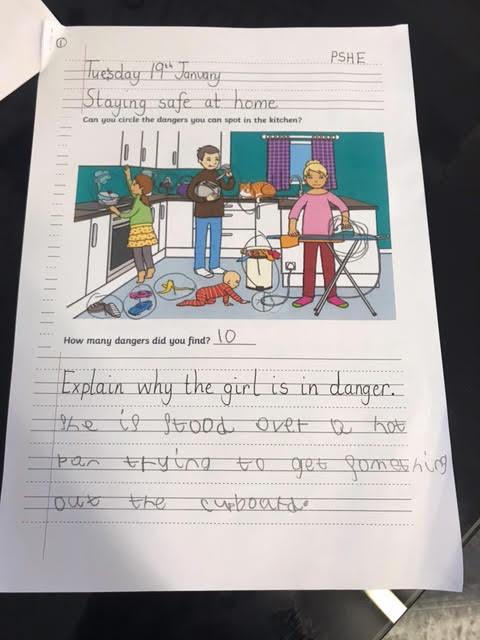 ①
PSHE
Tuesday 19th January
Staying safe at home
Can you circle the dangers you can spot in the kitchen?
How many dangers did you find? 10
Explain why the girl is in danger.
She is stood over a hot
pan trying to get something
out the cupboard.